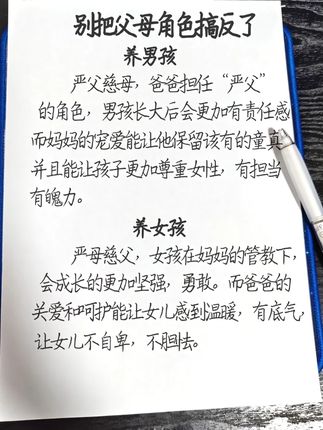 别把父母角色搞反了
养男孩
严父慈母，爸爸担任“严父”
的角色，男孩长大后会更加有责任感
而妈妈的宠爱能让他保留该有的童真
并且能让孩子更加尊重女性，有担当
有魄力。
养女孩
严母慈父，女孩在妈妈的管教下，
会成长的更加坚强，勇敢。而爸爸的
关爱和呵护能让女儿感到温暖，有底气，
让女儿不自卑，不胆怯。